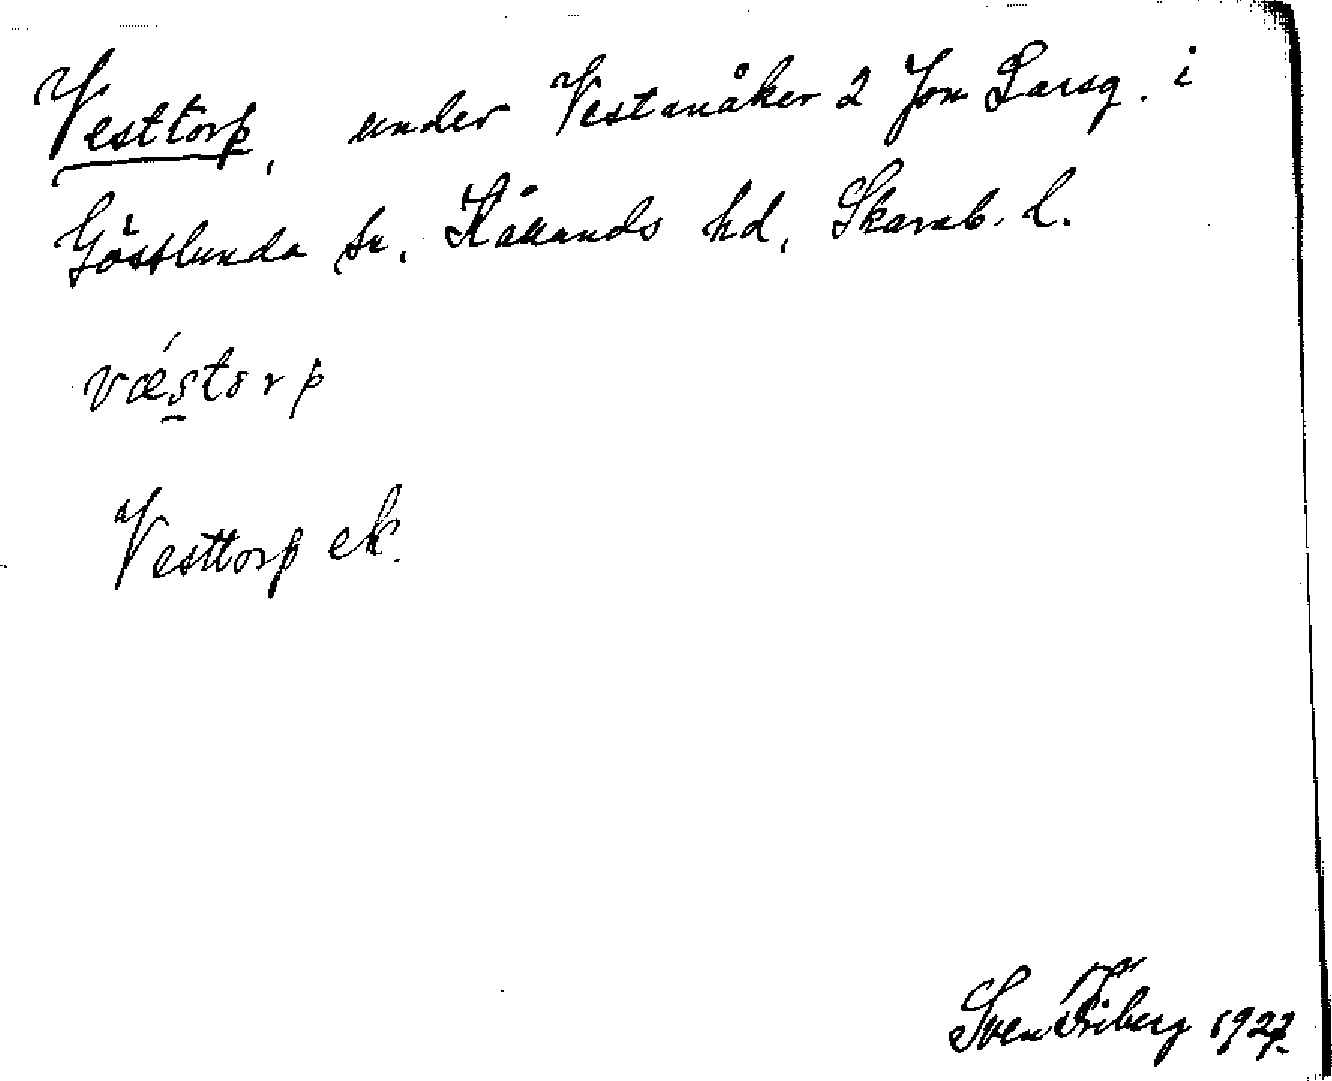 Vesttorp, under Vestanåker 2 Jon Larsg. i
Gösslunda sn, Kållands hd, Skarab. l.
vǽstorp
Vesttorp ek.
Sven Friberg 1927.